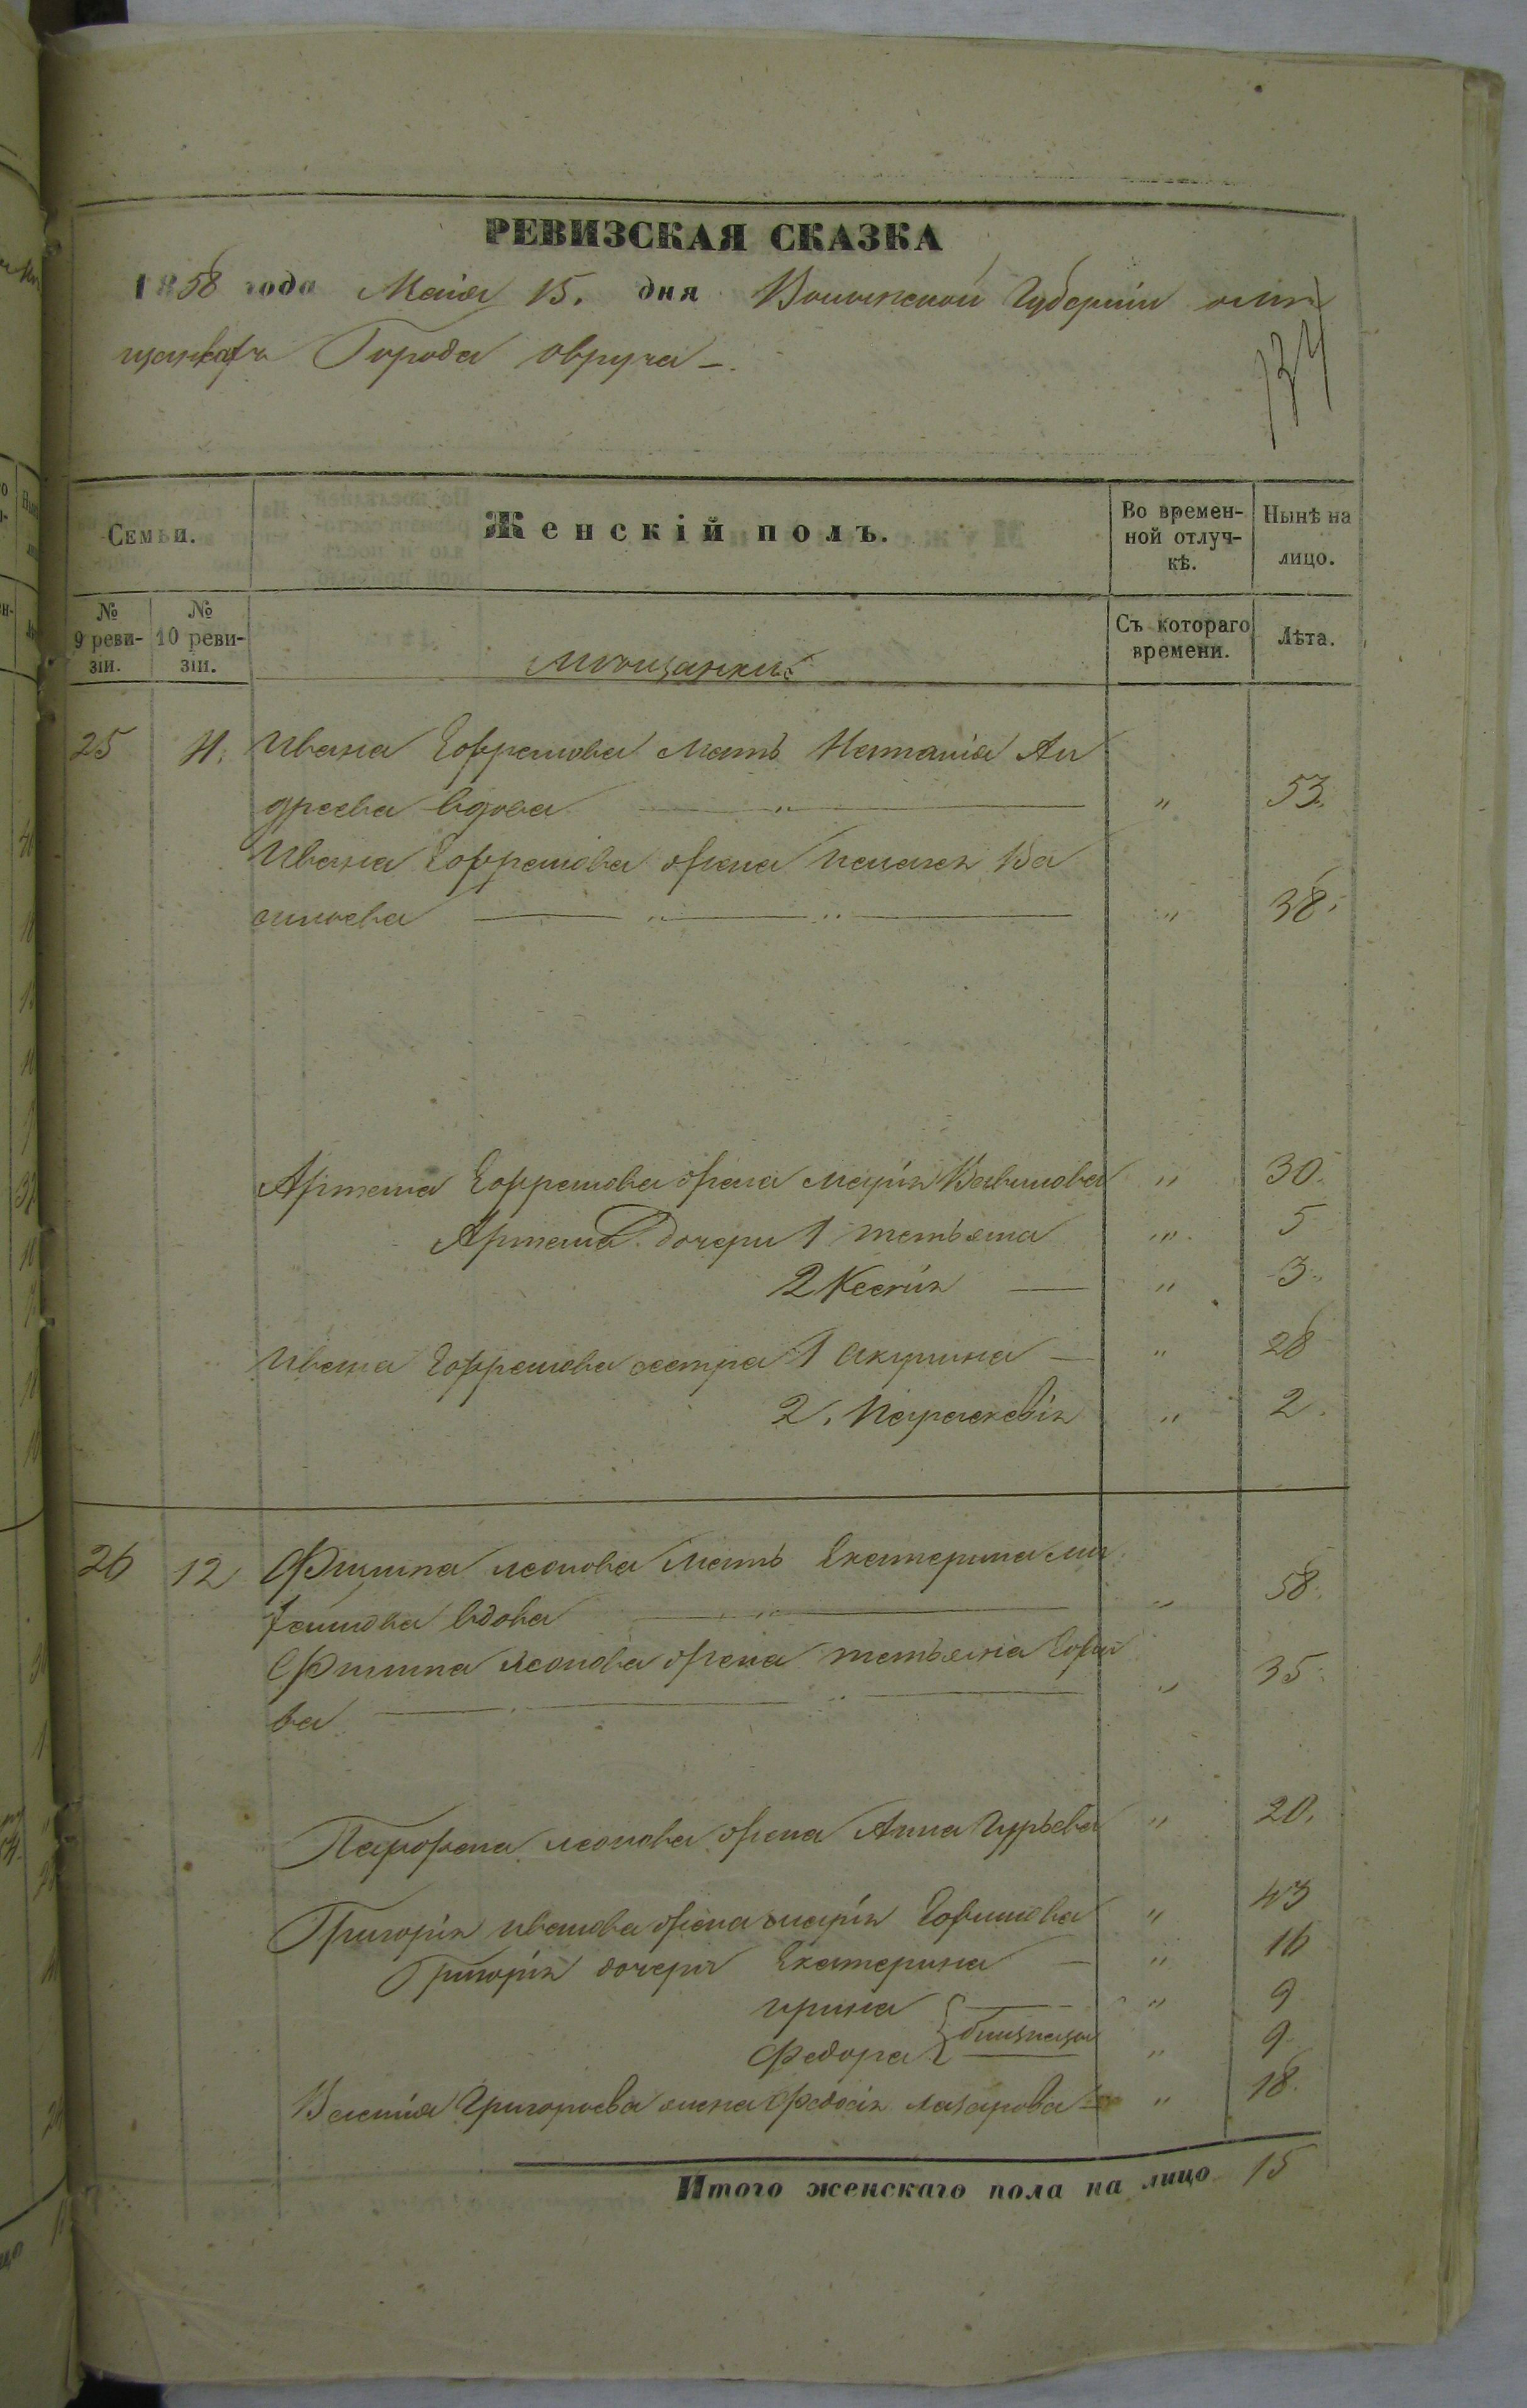 РЕВИЗСКАЯ СКАЗКА
1858 года Маія 15. дня Волынской Губерніи о мѣ
щанкахъ Города Овруча –.
134
Семьи. Женскій полъ. Во времен-ной отлуч-кѣ. Нынѣ на лицо.
№ 9 реви-зіи. № 10 реви-зіи. Мѣщанки: Съ котораго времени. Лѣта.
25 11. Ивана Ефремова мать Наталія Ан
дреева вдова " 53.
Ивана Ефремова жена Пелагея Ва
сильева " 38.
Артема Ефремова жена Марія Вавилова " 30.
Артема дочери 1 Татьяна " 5
2 Ксенія " 3.
Ивана Ефремова сестра 1 Акулина " 28
2. Параскевія " 2.
26 12 Филипа Леонова мать Екатерина Ми
хайлова вдова " 58.
Филипа Леонова жена Татьяна
ва " 35.
Парфена Леонова жена Анна Гурьева " 20.
Григорія Иванова жена Марія Ефимова " 43
Григорія дочери Екатерина " 16
Ирина " 9
Федора близнецы " 9
Василія Григорьева жена Федосія Лазарова " 18.
Итого женскаго пола на лицо 15